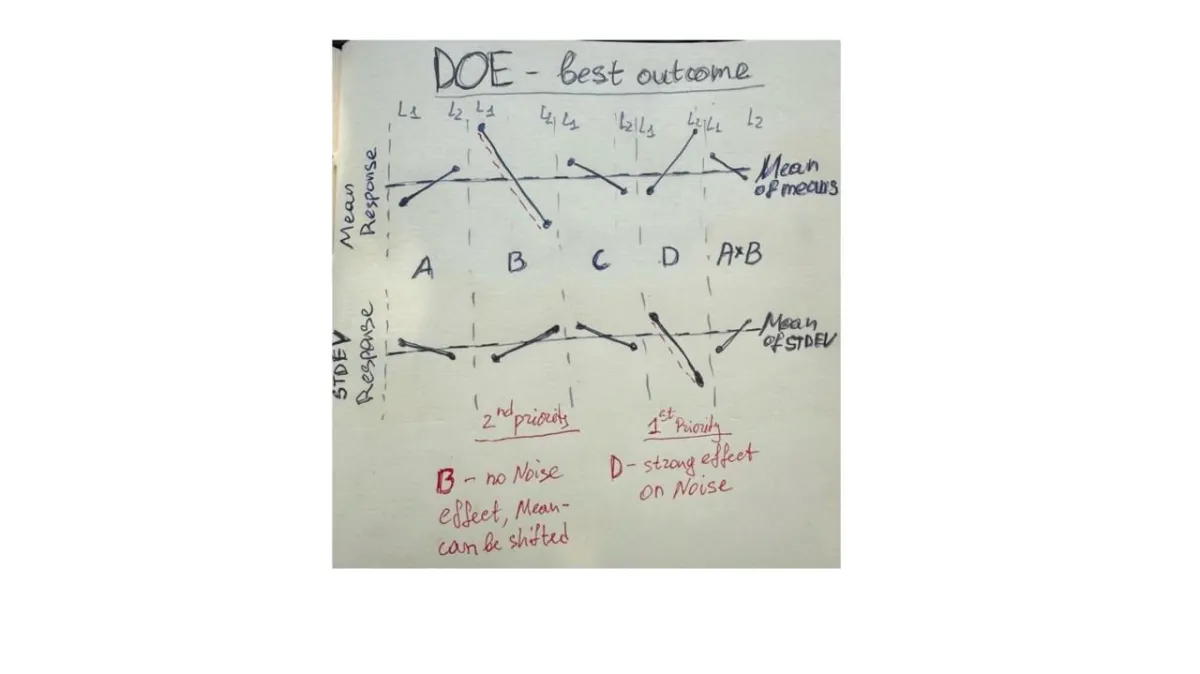 DOE - best outcome
L1 L2 L1 L2 L1 L2 L1 L2 L1 L2
Mean
Response
Mean
of means
A B C D A*B
STDEV
Response
Mean
of STDEV
2nd priority
1st Priority
B - no Noise
effect, Mean-
can be shifted
D - strong effect
on Noise